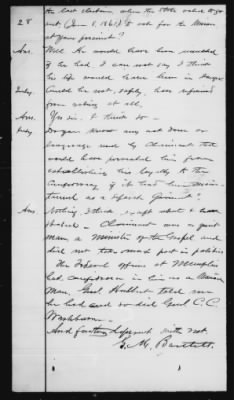 the last election, when the State voted to go
28 out (June 8, 1861) to vote for the Union
at your precinct?
Ans. Well. He would have been insulted
if he had I can not say I think
his life would have been in danger
Could he not, safely, have refrained
from voting at all.
Ans. Yes sir. I think so
Do you know any act done or
language used by Claimant that
would have prevented him from
establishing his loyalty to the
Confederacy if it had been
a Government?
Ans. Nothing I think, except what I have
stated. Claimant was a quiet
man a minister of the Gospel and
did not take part in politics
The Federal officers at Memphis
had confidence in him as a Union
man, Genl Hurlbut told me
he had and so did Genl C.C.
Washburn.
And further deponent saith not.
G. M. Bartlett.